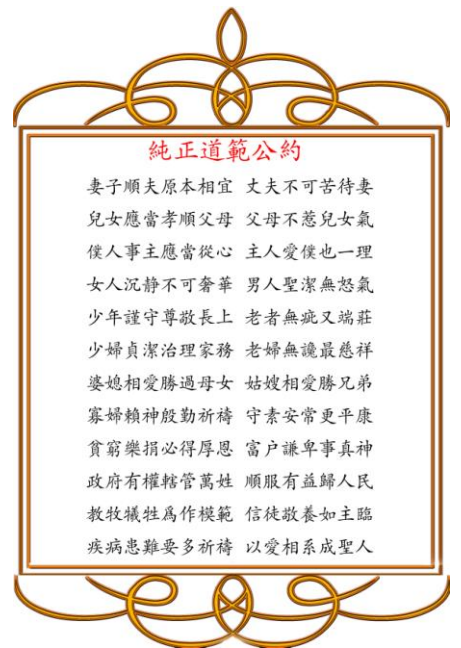 純正道範公約
妻子順夫原本相宜 丈夫不可苦待妻
兒女應當孝順父母 父母不惹兒女氣
僕人事主應當從心 主人愛僕也一理
女人沉静不可奢華 男人聖潔無怒氣
少年謹守尊敬長上 老者無疵又端莊
少婦貞潔治理家務 老婦無讒最慈祥
婆媳相愛勝過母女 姑嫂相愛勝兄弟
寡婦賴神殷勤祈禱 守素安常更平康
貧窮樂捐必得厚恩 富户謙卑事真神
政府有權轄管萬姓 順服有益歸人民
教牧犧牲爲作模範 信徒敬養如主臨
疾病患難要多祈禱 以愛相系成聖人